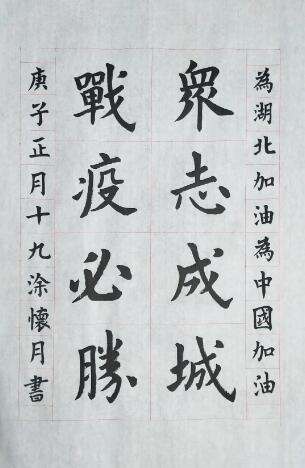 為湖北加油為中國加油
衆志成城
戰疫必勝
庚子正月十九涂懷月書